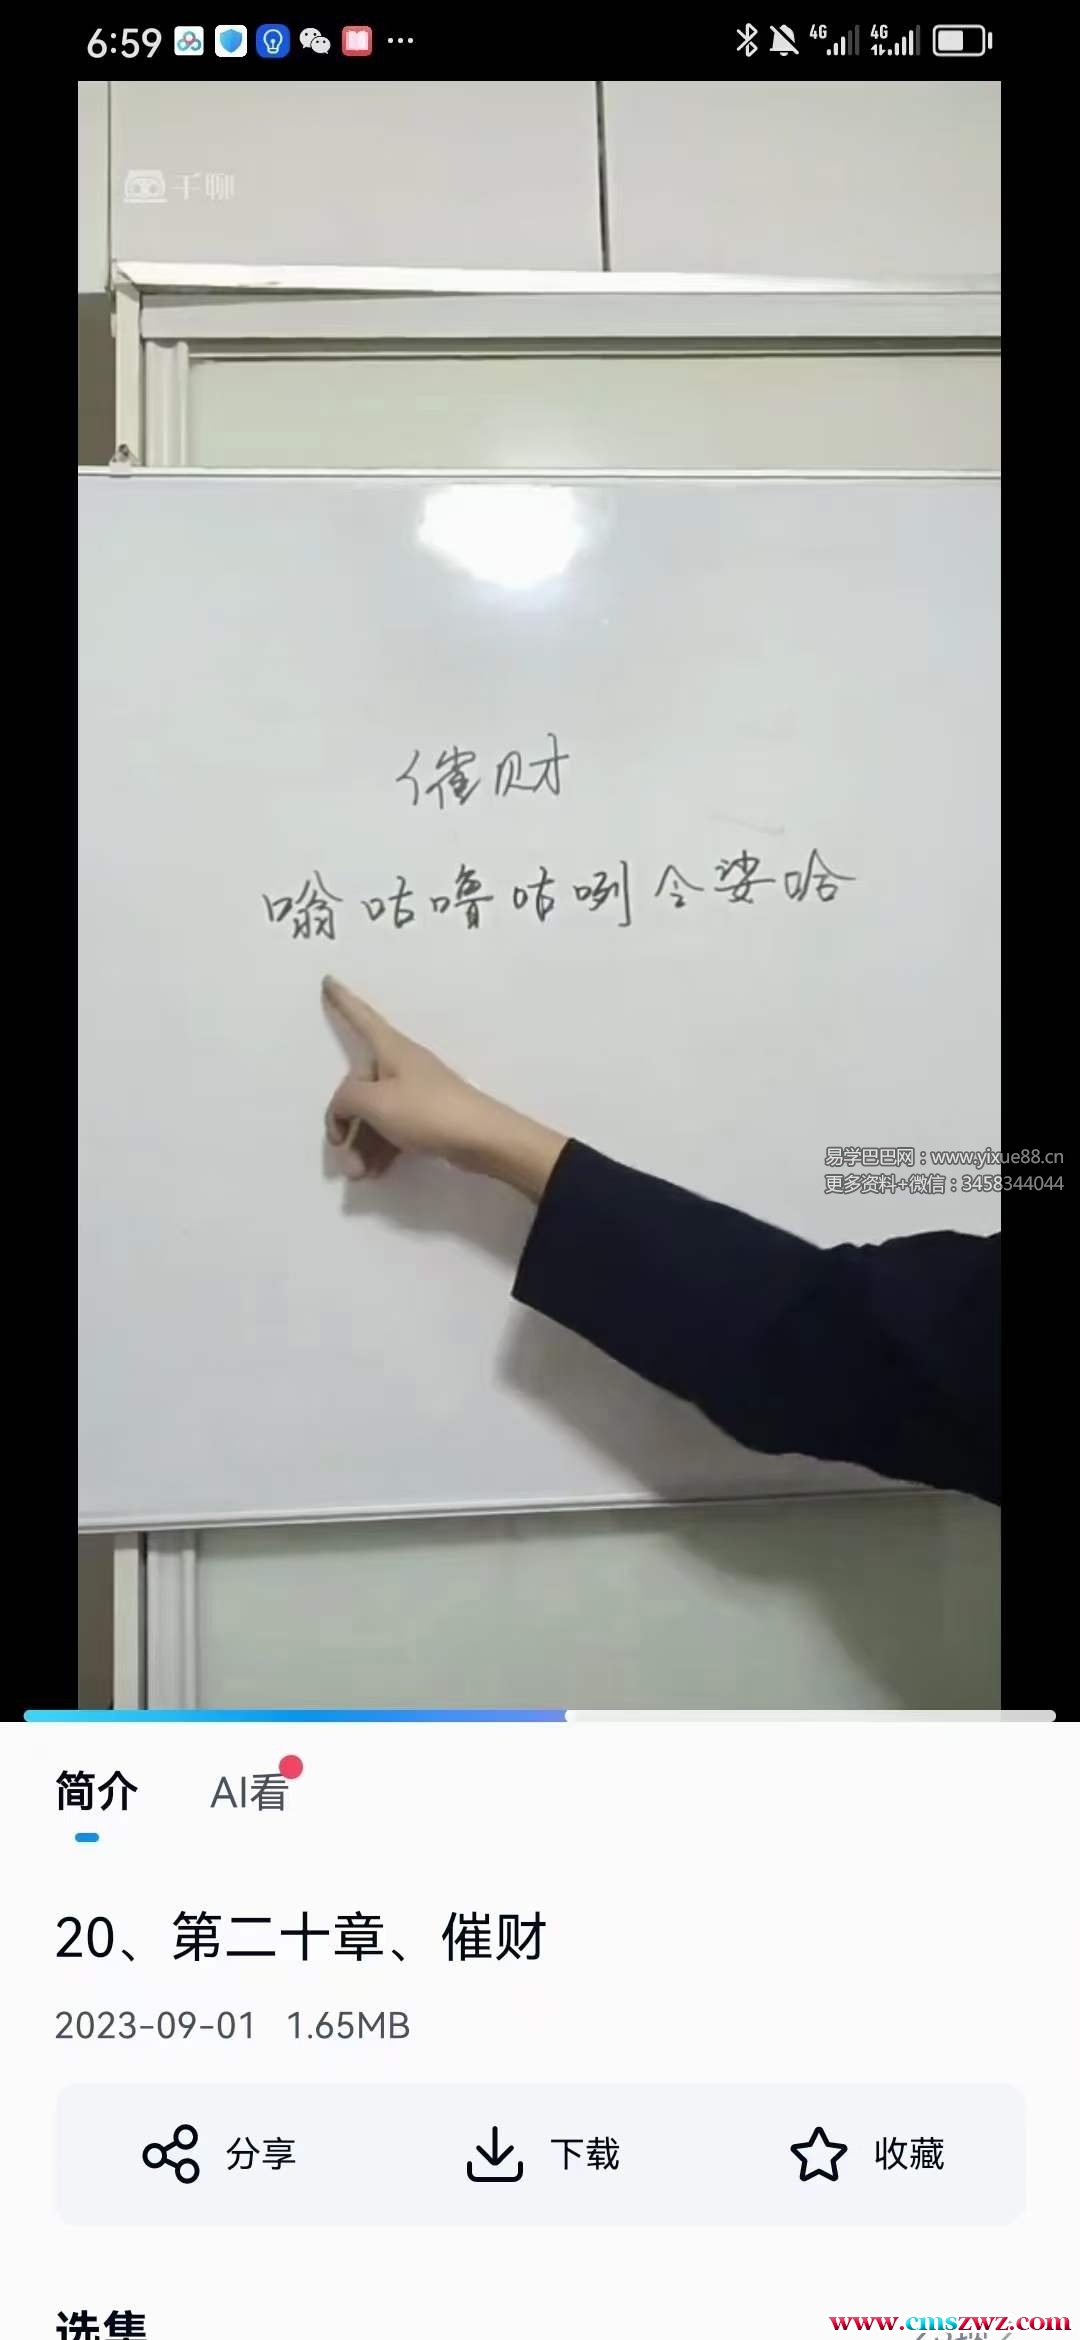 6:59
4G 4G
千聊
催财
嗡咕噜咕咧令娑哈
易学巴巴网：www.yixue88.cn
更多资料+微信：3458344044
简介 AI看
20、第二十章、催财
2023-09-01 1.65MB
分享 下载 收藏
选集
www.cmszwz.com